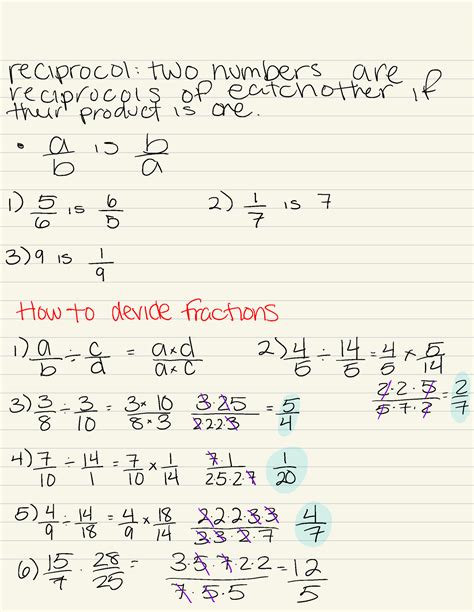 reciprocol: two numbers are
reciprocols of eatchother if
their product is one.
• a/b is b/a
1) 5/6 is 6/5 2) 1/7 is 7
3) 9 is 1/9
How to devide fractions
1) a/b ÷ c/d = a×d/a×c 2) 4/5 ÷ 14/5 = 4/5 × 5/14
2·2·5/5·7·2 = 2/7
3) 3/8 ÷ 3/10 = 3×10/8×3 3·2·5/2·2·2·3 = 5/4
4) 7/10 ÷ 14/1 = 7/10 × 1/14 7·1/2·5·2·7 1/20
5) 4/9 ÷ 14/18 = 4/9 × 18/14 2·2·2·3·3/3·3·2·7 4/7
6) 15/7 · 28/25 = 3·5·7·2·2/7·5·5 = 12/5